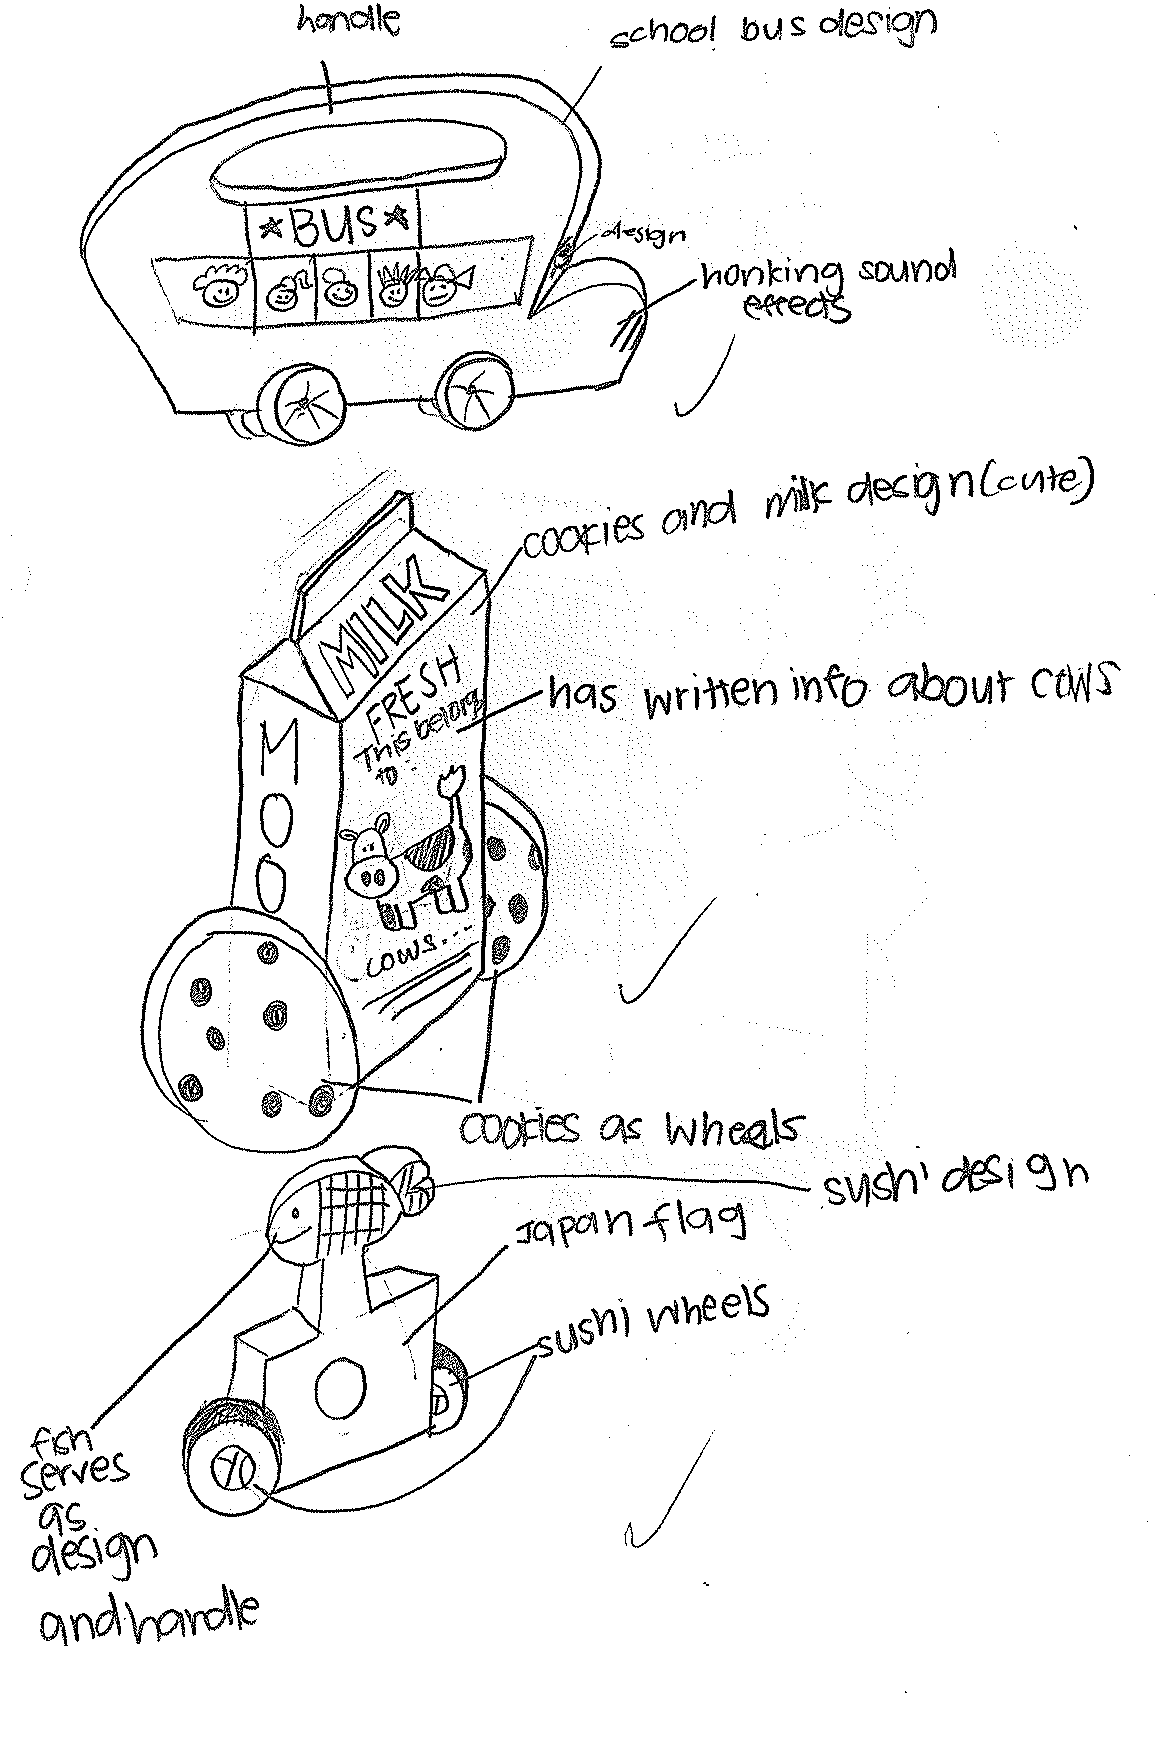 handle
school bus design
BUS
design
honking sound
effects
cookies and milk design (cute)
MILK
FRESH
This belong
to..
has written info about cows
MOO
cows...
cookies as wheels
sushi design
Japan flag
sushi wheels
fish
serves
as
design
and handle